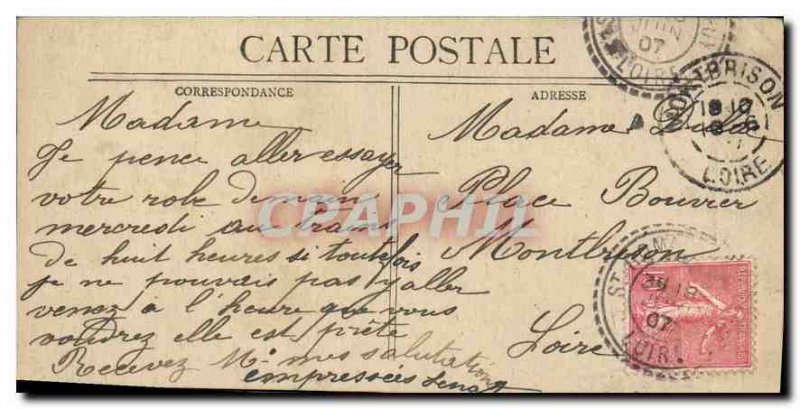 CARTE POSTALE
CORRESPONDANCE
Madame
Je pence aller essayer
votre robe demain
mercredi au train
de huit heures si toutefois
je ne pouvais pas y aller
venez à l'heure que vous
voudrez elle est prète
Recevez Me mes salutations
empressées
ADRESSE
Madame
Place Bouvier
Montbrison
Loire
JUIN
07
LOIRE
MONTBRISON
LOIRE
ST
07
LOIRE
CPAPHIL